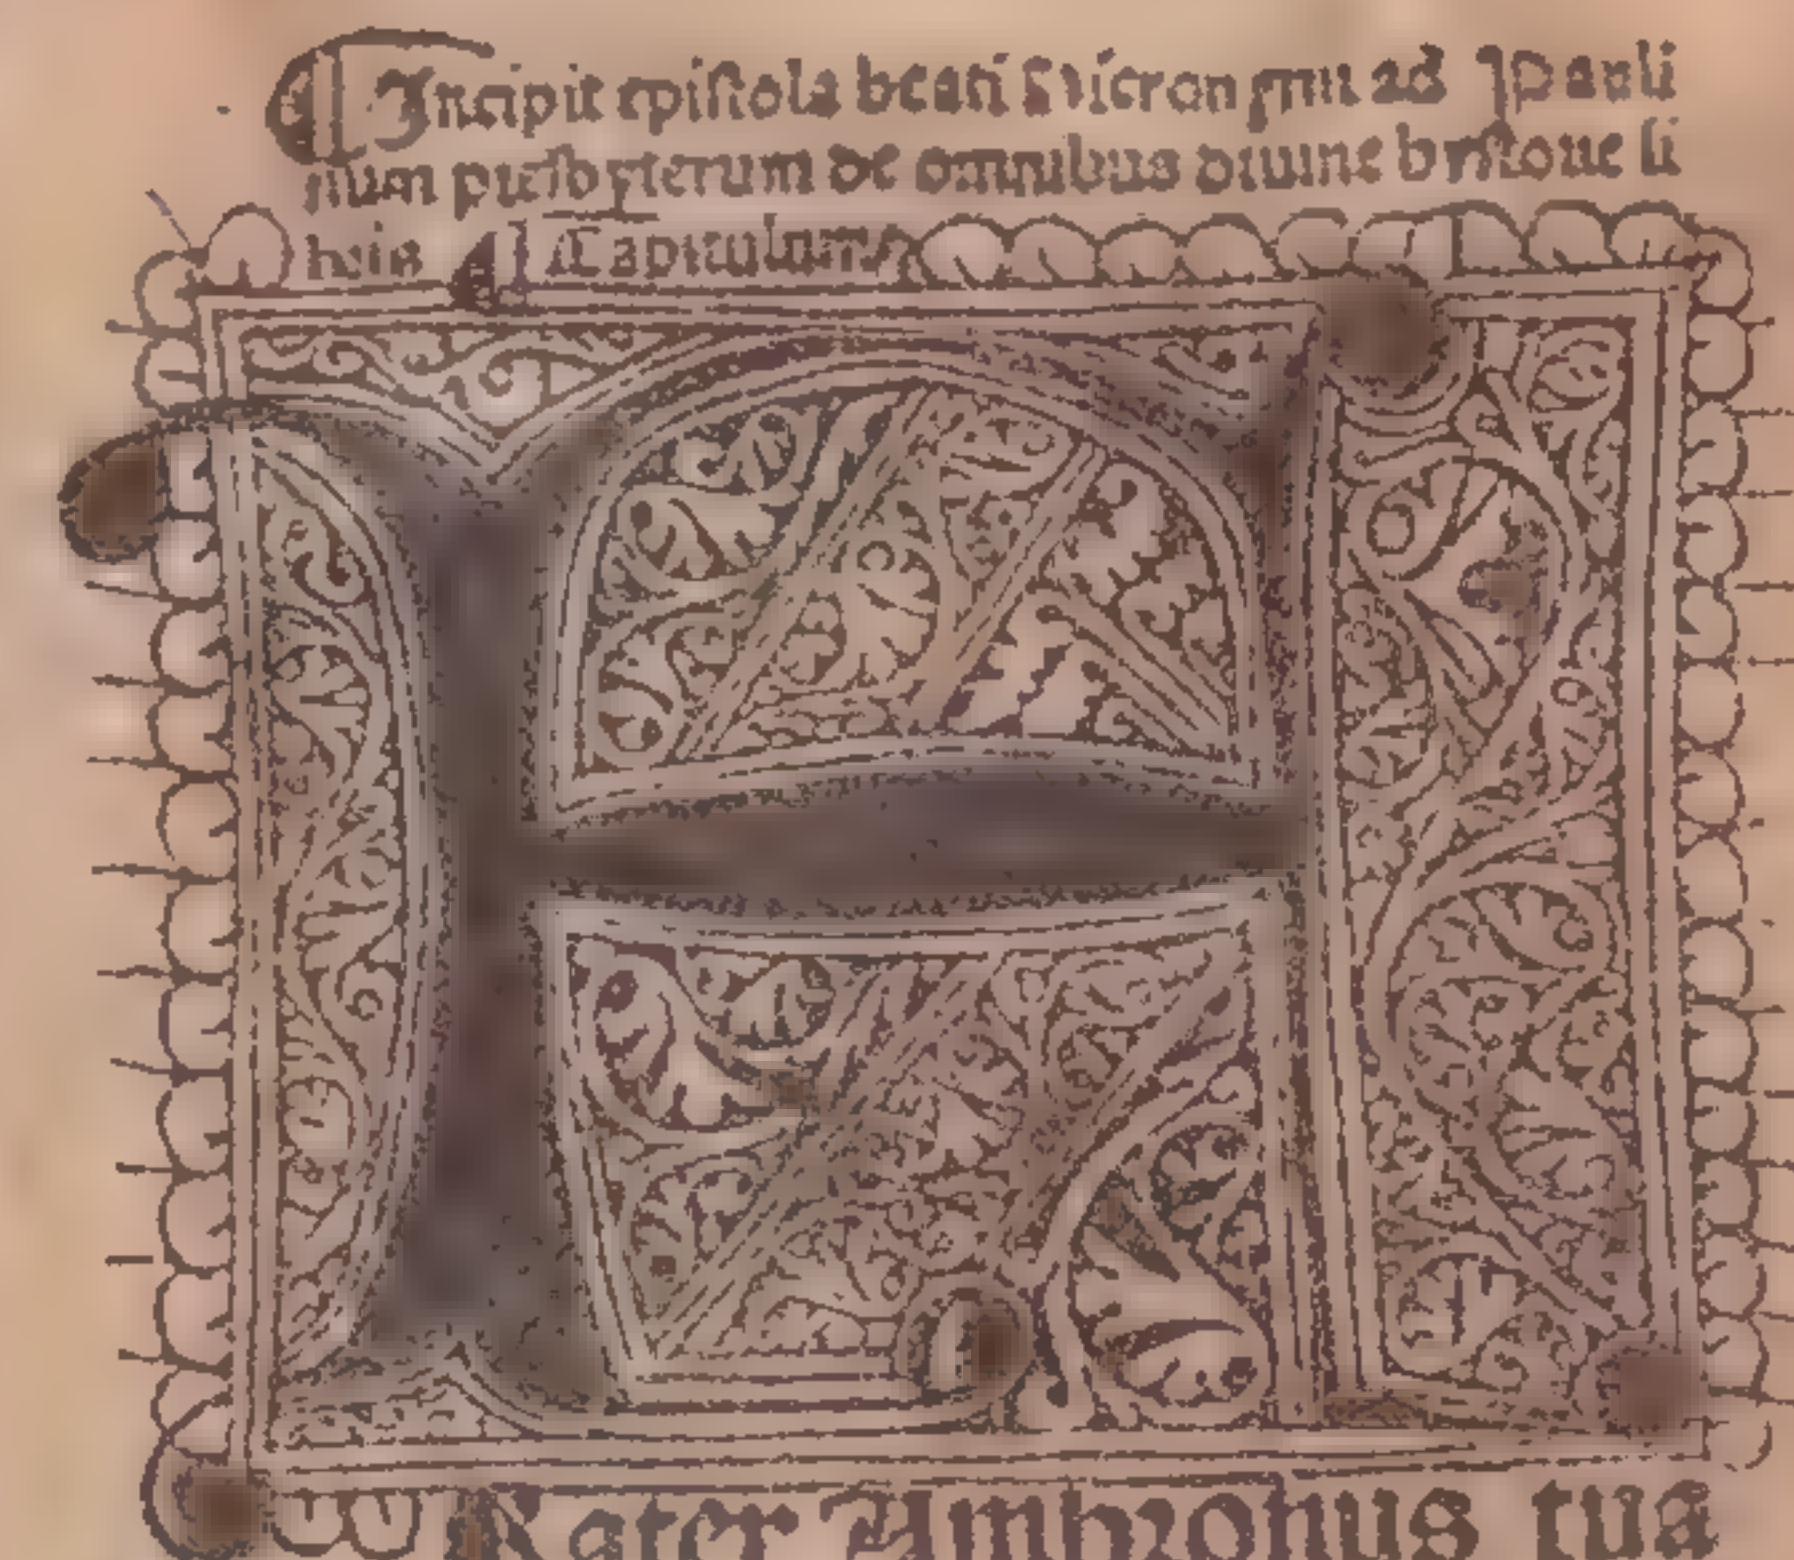 Incipit epistola beati Hieronymi ad Pauli
num presbyterum de omnibus diuine hystorie li
bris Capitulum
Rater Ambrosius tua